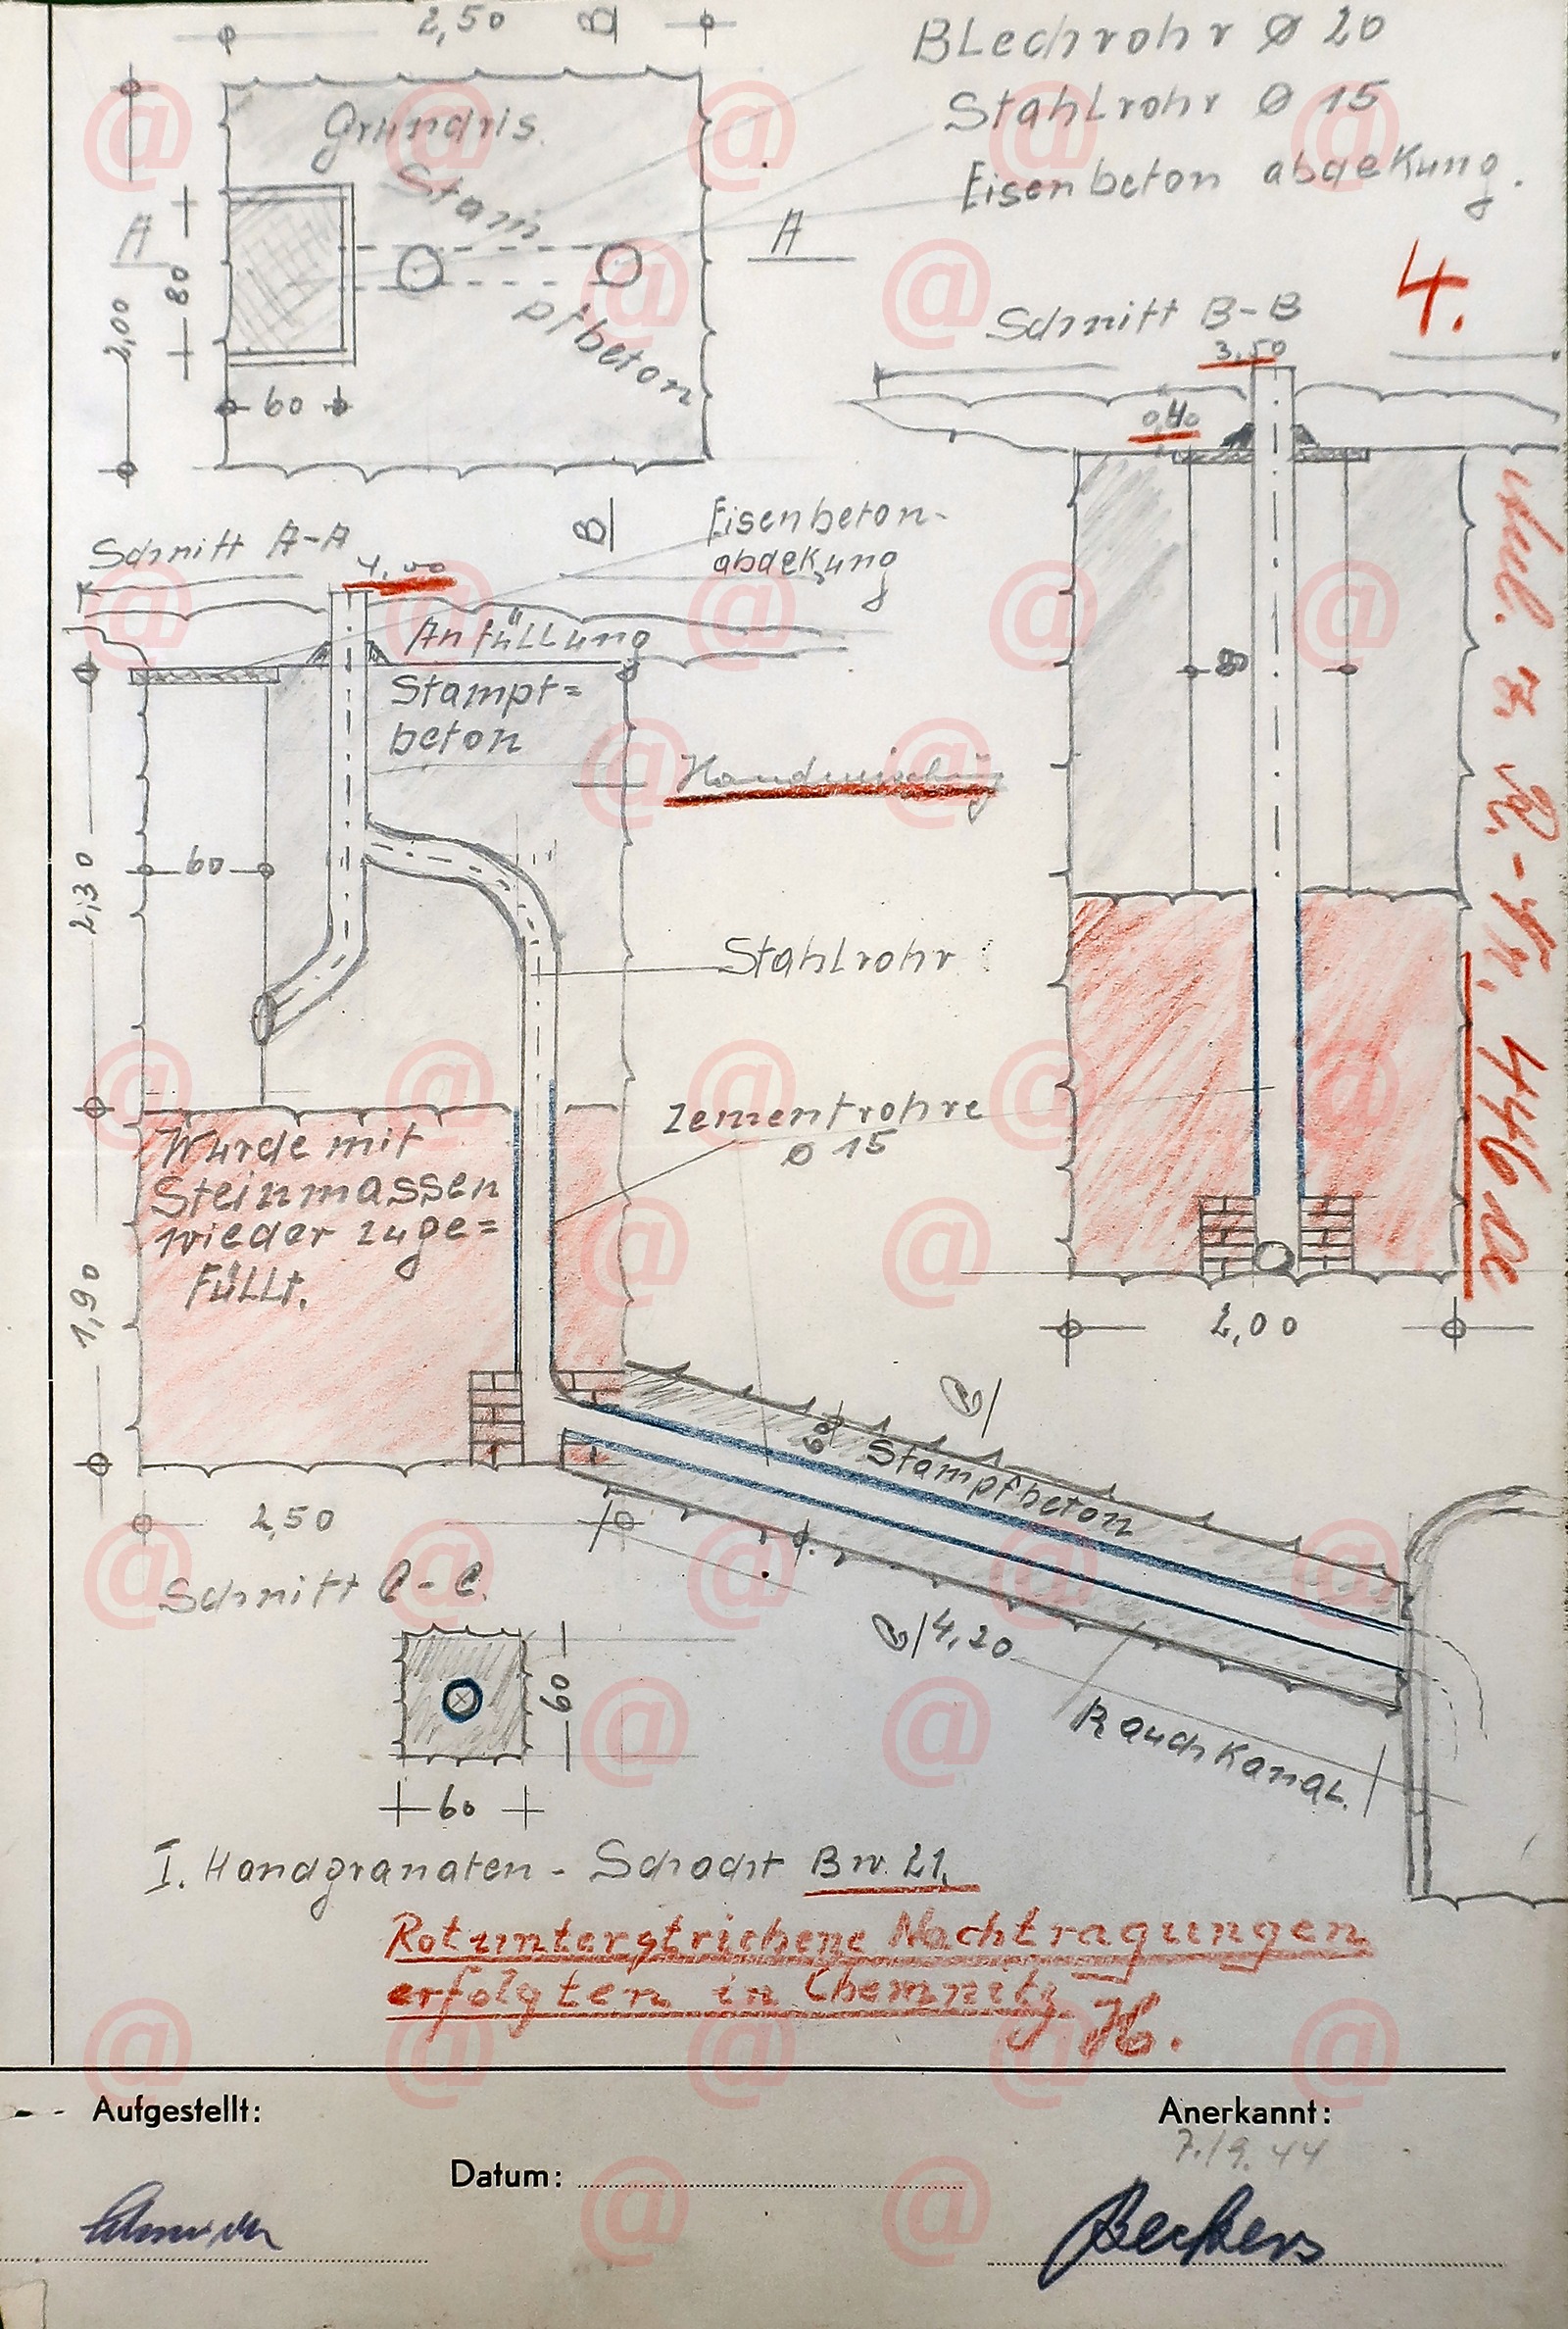 2,50
B
Blechrohr Ø 20
Stahlrohr Ø 15
Eisenbeton abdekung.
Grundris.
Stam
pfbeton
A
A
80
2,00
60
B
4.
Schnitt B-B
3,50
0,40
80
2,00
Schnitt A-A
4,00
Eisenbeton-
abdekung
Anfüllung
Stampf=
beton
Handmischung
60
2,30
Stahlrohr
Zementrohre
Ø 15
Wurde mit
Steinmassen
wieder zuge=
füllt.
1,90
2,50
C
60
Stampfbeton
C
4,20
Rauchkanal.
Schnitt C-C.
60
60
I. Handgranaten-Schacht Bw. 21.
Rotunterstrichene Nachtragungen
erfolgten in Chemnitz H.
Aufgestellt:
Anerkannt:
7./9.44
Datum:
Beckers